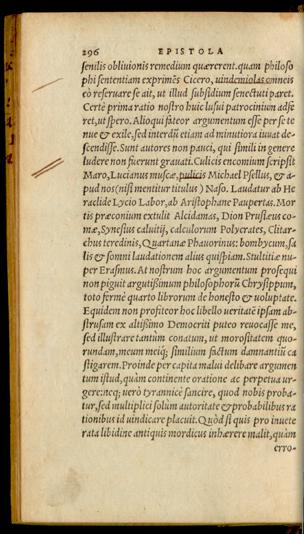 296 EPISTOLA
senilis obliuionis remedium quærerent. quam philoso
phi sententiam exprimẽs Cicero, uindemiolas omneis
eò reseruare se ait, ut illud subsidium senectuti paret.
Certè prima ratio nostro huic lusui patrocinium adfe
ret, ut spero. Alioqui fateor argumentum esse per se te
nue & exile, sed interdũ etiam ad minutiora iuuat de-
scendisse. Sunt autores non pauci, qui simili in genere
ludere non fuerunt grauati. Culicis encomium scripsit
Maro, Lucianus muscæ, pulicis Michael Psellus, & a-
pud nos (nisi mentitur titulus) Naso. Laudatur ab He
raclide Lycio Labor, ab Aristophane Paupertas. Mor
tis præconium extulit Alcidamas, Dion Prusæus co-
mæ, Synesius caluitij, calculorum Polycrates, Clitar-
chus teredinis, Quartanæ Phauorinus: bombycum, sa
lis & somni laudationem alius quispiam. Stultitiæ nu-
per Erasmus. At nostrum hoc argumentum prosequi
non piguit argutißimum philosophorũ Chrysippum,
toto fermè quarto librorum de honesto & uoluptate.
Equidem non profiteor hoc libello ueritatẽ ipsam ab-
strusam ex altißimo Democriti puteo reuocasse me,
sed illustrare tantùm conatum, ut morositatem quo-
rundam, meum meiq́; similium factum damnantiũ ca
stigarem. Proinde per capita malui delibare argumen
tum istud, quàm continente oratione ac perpetua ur-
gere: neq; uerò tyrannicè sancire, quod nobis proba-
tur, sed multiplici solùm autoritate & probabilibus ra
tionibus id uindicare placuit. Quòd si quis pro inuete
rata libidine antiquis mordicus inhærere malit, quàm
erro-